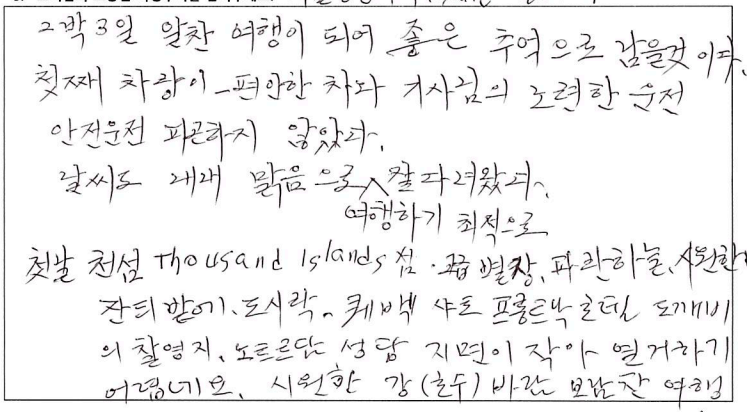 2박3일 알찬 여행이 되어 좋은 추억으로 남을것 이다.
첫째 차량이 - 편안한 차와 기사님의 노련한 운전
안전운전 피곤하지 않았다.
날씨도 내내 맑음으로 잘 다녀왔다.
여행하기 최적으로
첫날 천섬 Thousand Islands 섬 · 고급 별장, 파란하늘, 시원한
잔디밭에, 도시락. 퀘백 샤또 프롱트낙 호텔 도깨비
의 촬영지, 노트르담 성당 지면이 작아 열거하기
어렵네요, 시원한 강(호수) 바람 보람찬 여행